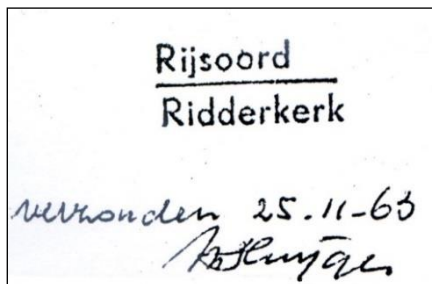 Rijsoord
Ridderkerk
verzonden 25.11-63